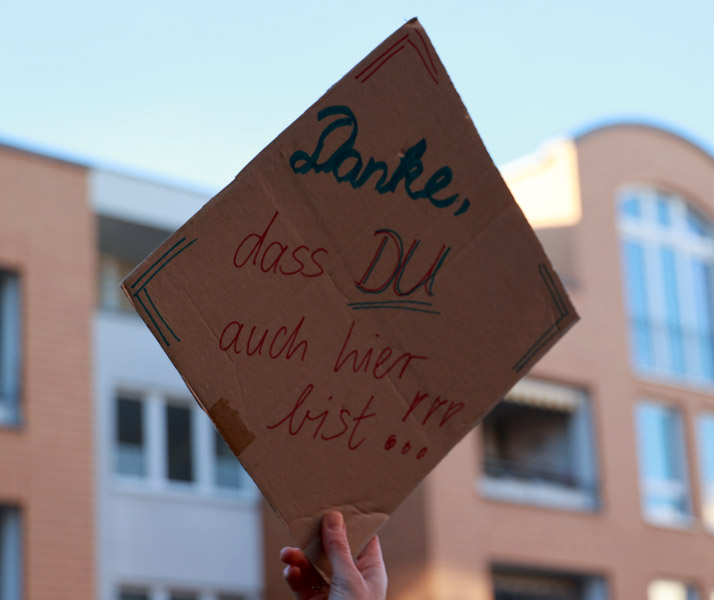 Danke,
dass DU
auch hier
bist!!!